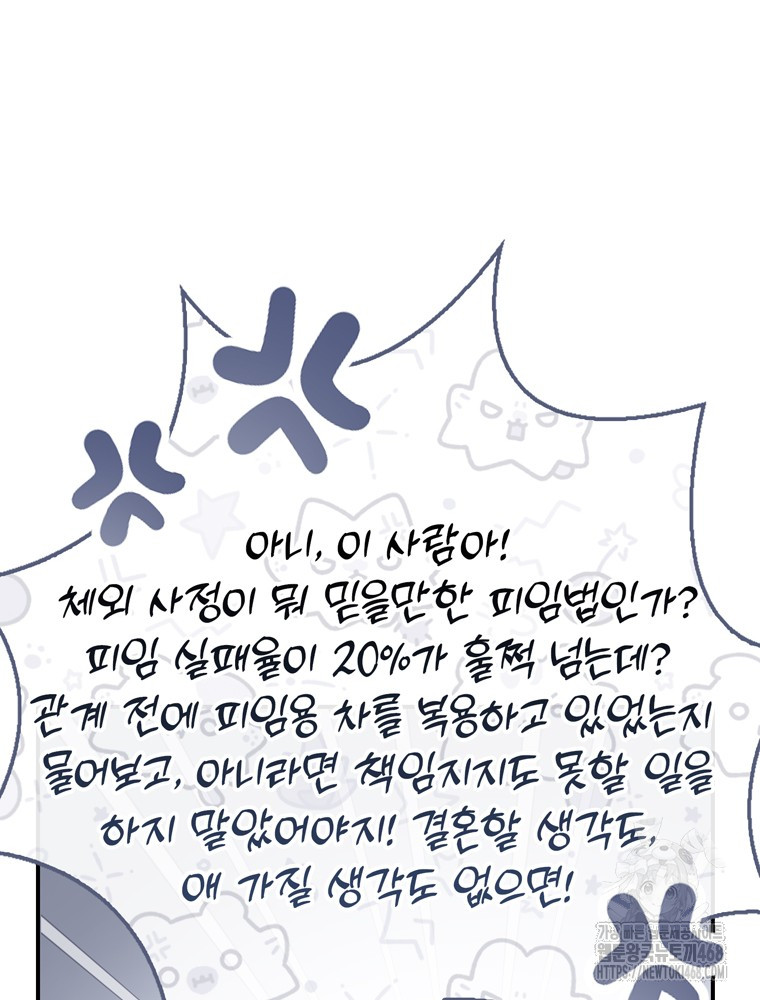 아니, 이 사람아!
체외 사정이 뭐 믿을만한 피임법인가?
피임 실패율이 20%가 훌쩍 넘는데?
관계 전에 피임용 차를 복용하고 있었는지
물어보고, 아니라면 책임지지도 못할 일을
하지 말았어야지! 결혼할 생각도,
애 가질 생각도 없으면!
가장 빠른 웹툰제공사이트
웹툰왕국뉴토끼468
https://newtoki468.com